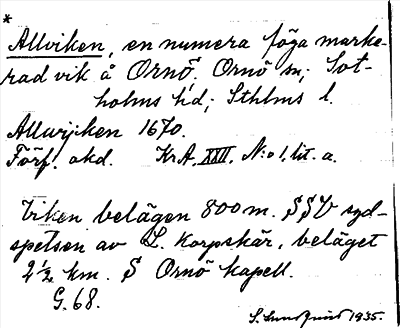 *
Allviken, en numera föga marke-
rad vik å Ornö. Ornö sn; Sot-
holms hd; Sthlms l.
Allwijken 1670.
Förf. okd. KrA, XXII, N:o 1, lit. a.
Viken belägen 800 m. SSV syd-
spetsen av L. Korpskär, beläget
2½ km. S Ornö kapell.
G. 68.
S. Lundqvist 1935.